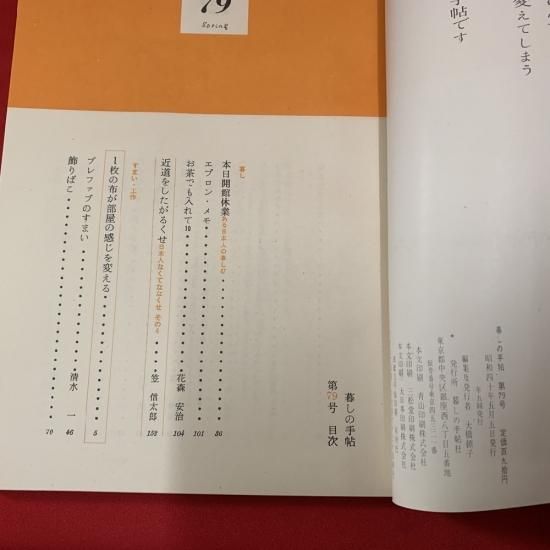 変えてしまう
手帖です
暮しの手帖 第79号 定価百九拾円
昭和四十年五月五日発行
年五回発行
編集及発行者 大橋鎭子
発行所 暮しの手帖社
東京都中央区銀座西八丁目五番地
本文印刷 青山印刷株式会社
本文印刷 三松堂印刷株式会社
本文印刷 大日本印刷株式会社
79
Spring
暮しの手帖
第79号 目次
暮し
本日開館休業 ある日本人の暮し 86
エプロン・メモ 101
お茶でも入れて10 花森 安治 104
近道をしたがるくせ 日本人なくてななくせ その4 笠 信太郎 152
すまい・工作
1枚の布が部屋の感じを変える 5
プレファブのすまい 清水 一 46
飾りばこ 70